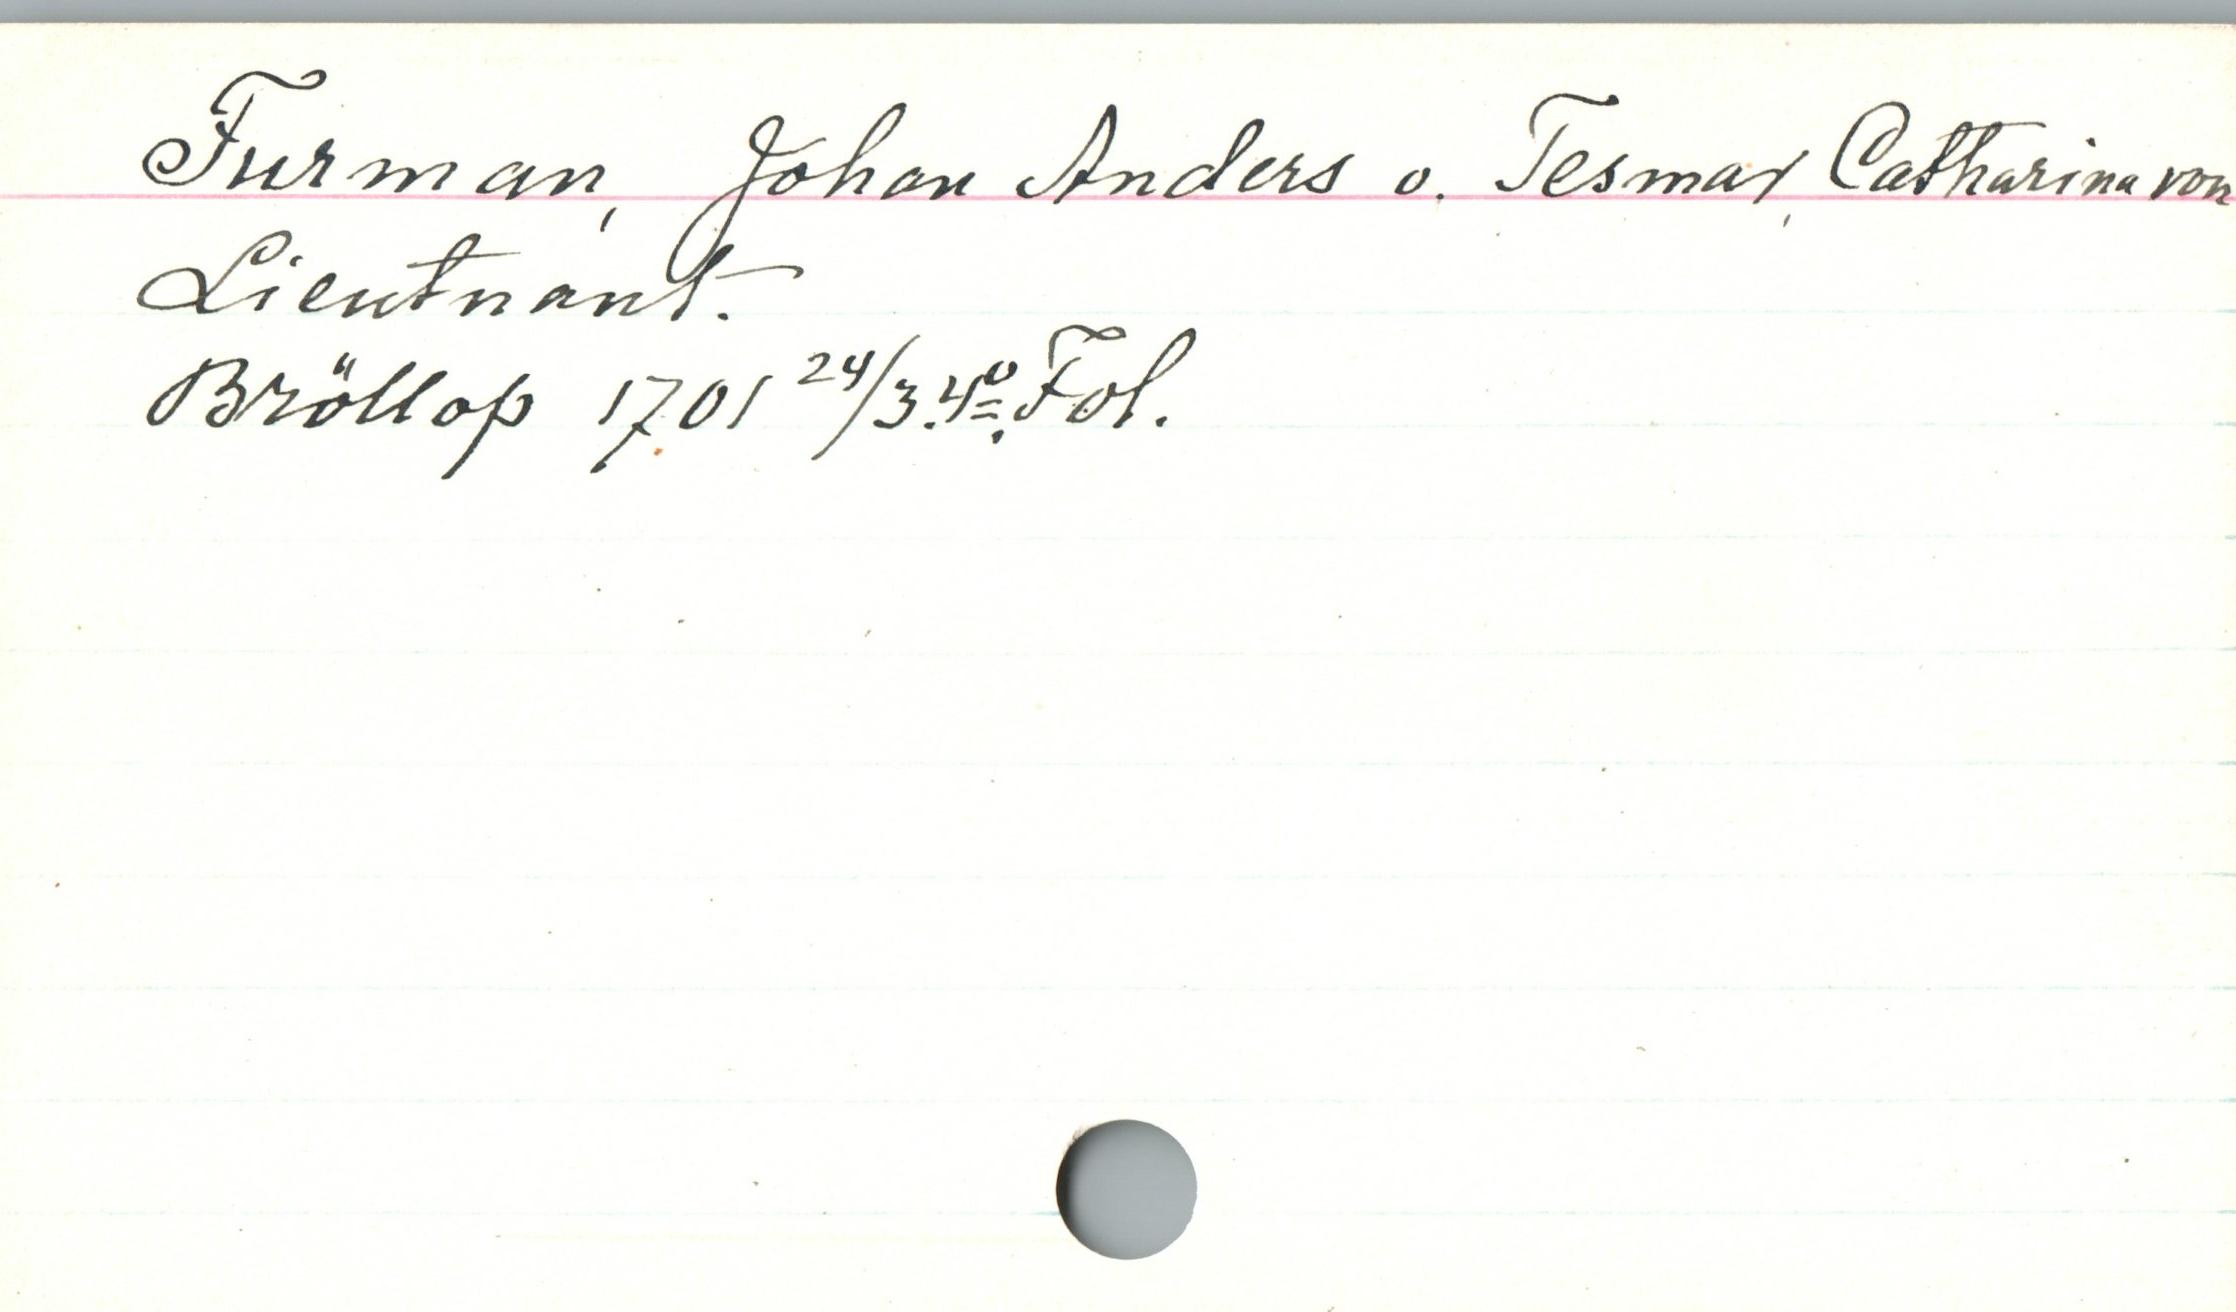 Furman, Johan Anders o. Tesmar, Catharina von
Lieutnant.
Bröllop 1701 24/3. 4º. Fol.